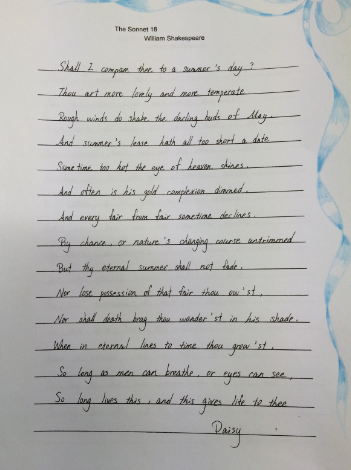 The Sonnet 18
William Shakespeare
Shall I compare thee to a summer's day?
Thou art more lovely and more temperate
Rough winds do shake the darling buds of May
And summer's lease hath all too short a date
Sometime too hot the eye of heaven shines
And often is his gold complexion dimmed.
And every fair from fair sometime declines.
By chance, or nature's changing course untrimmed
But thy eternal summer shall not fade.
Nor lose possession of that fair thou ow'st.
Nor shall death brag thou wander'st in his shade.
When in eternal lines to time thou grow'st.
So long as men can breathe, or eyes can see,
So long lives this, and this gives life to thee
Daisy